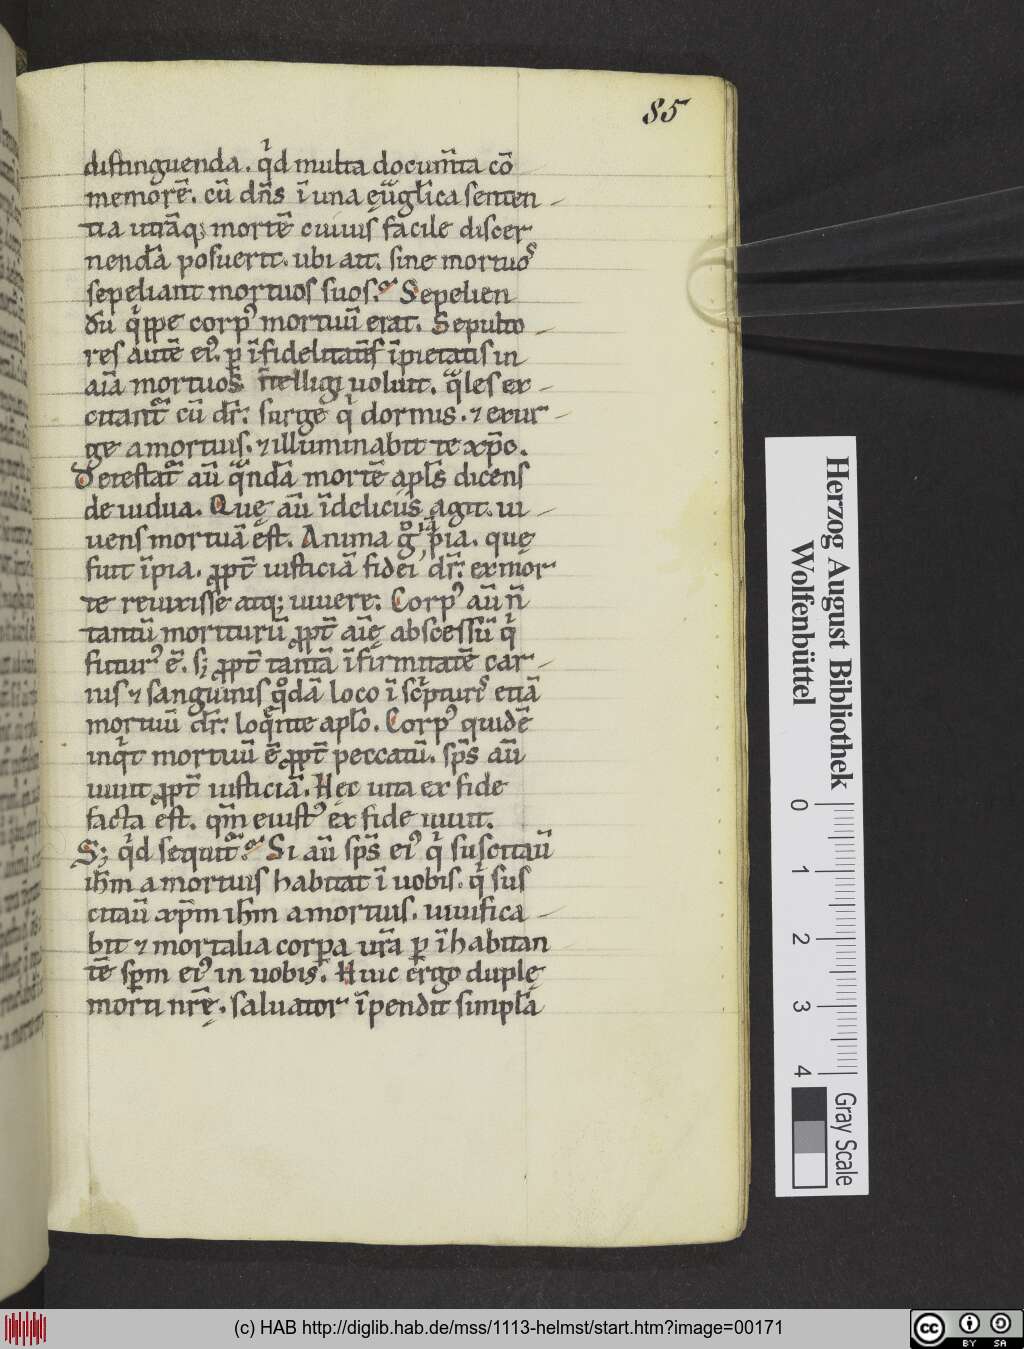 85
distinguenda. qͥd multa docum̄ta cō
memorē. cū dn̄s ī una euͣgl̄ica senten
tia utrāq; mortē cuiuis facile discer
nendā posuerit. ubi ait. sine mortuoˢ
sepeliant mortuos suos. Sepelien
dū qͥppe corpꝰ mortuū erat. Sepulto
res autē eiꝰ. ꝑ īfidelitatis īpietatis in
aīa mortuos n̄telligi uoluit. qͣles ex
citant᷑ cū dr̄: surge qͥ dormis. ⁊ exur
ge a mortuis. ⁊ illuminabit te xp̄c.
Detestat᷑ aū qͣndā mortē apl̄s dicens
de uidua. Quę aū ī deliciis agit. ui
uens mortua ē est. Anima gͦ pia. quę
fuit īpia. ꝓpt̄ iusticiā fidei dr̄: ex mor
te reuixisse atq; uiuere: Corpꝰ aū n̄
tantū moriturū ꝓpt̄ aīę abscessū qͥ
futurꝰ ē. s; ꝓpt̄ tantā īfirmitatē car
nis ⁊ sanguinis qͦdā loco ī scͥpturis etiā
mortuū dr̄: loquente aplō. Corpꝰ quidē
inqͥt mortuū ē ꝓpt̄ peccatū. sp̄s aū
uiuit ꝓpt̄ iusticiā. Hęc uita ex fide
facta est. qm̄ eni iustꝰ ex fide uiuit.
S; qͥd sequit᷑. Si aū sp̄s eiꝰ qͥ suscitau̅
ihm̄ a mortuis habitat ī uobis. qͥ sus
citau̅ xp̄m ihm̄ a mortuis. uiuifica
bit ⁊ mortalia corꝑa ur̄a ꝑ īhabitan
tē sp̄m eiꝰ in uobis. Huic ergo duplę
morti nr̄ę. saluator īpendit simplā
Herzog August Bibliothek
Wolfenbüttel
0 1 2 3 4
Gray Scale
(c) HAB http://diglib.hab.de/mss/1113-helmst/start.htm?image=00171
cc BY SA